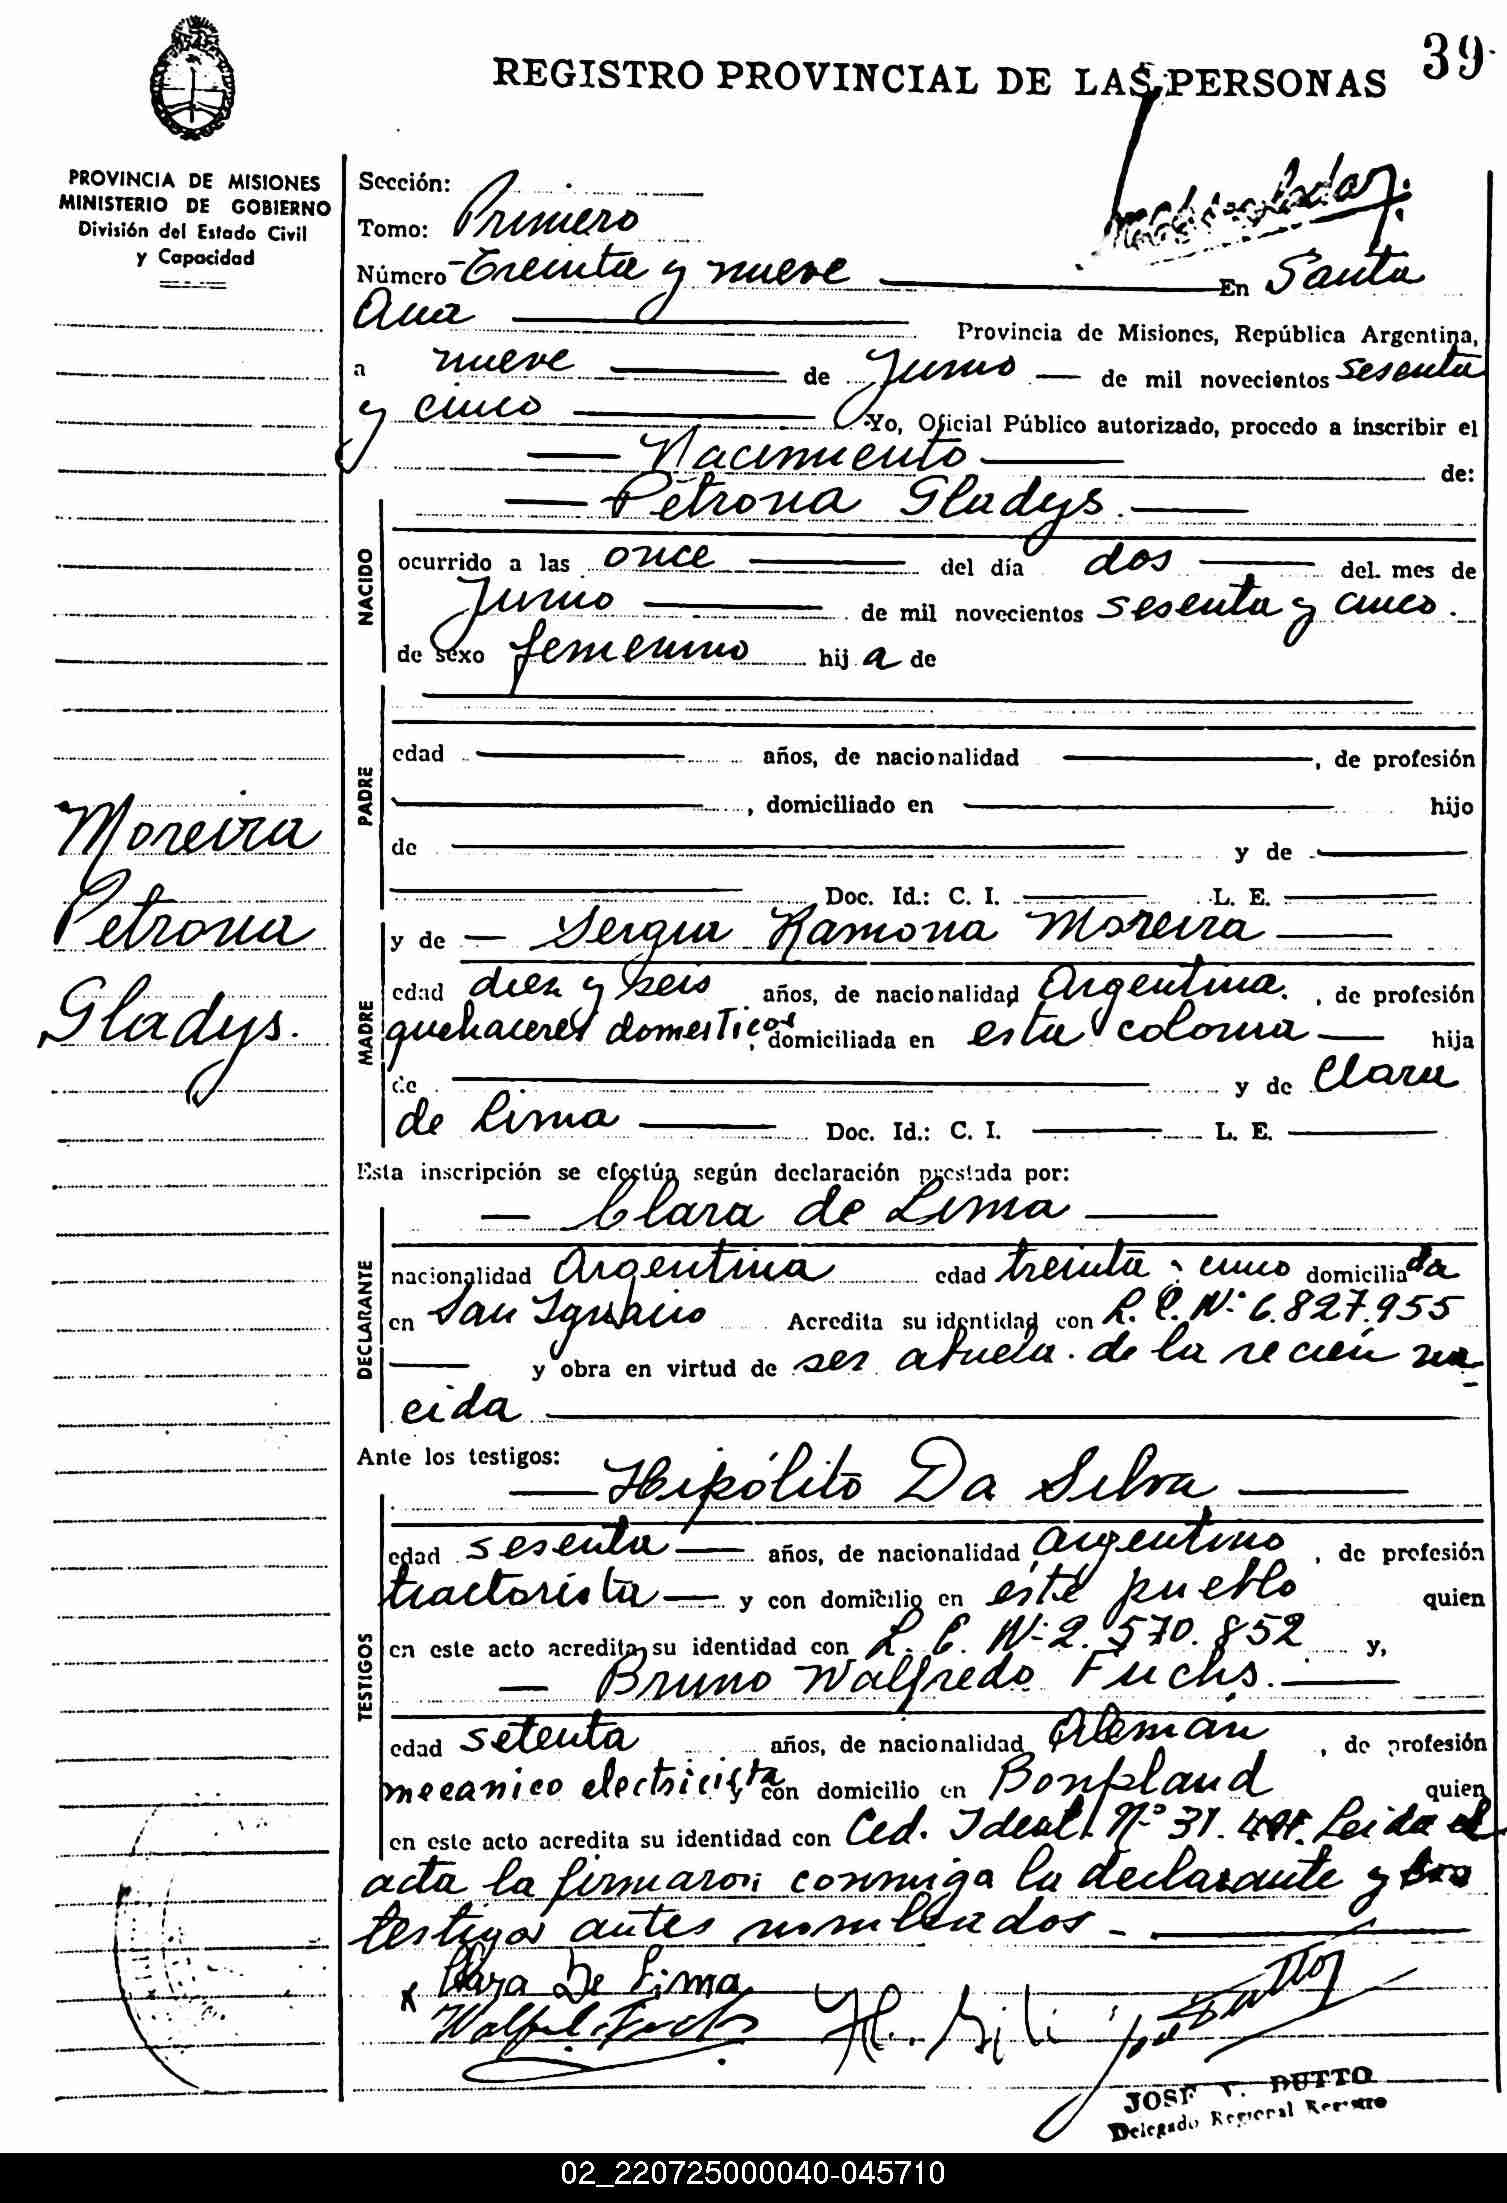 39
REGISTRO PROVINCIAL DE LAS PERSONAS
PROVINCIA DE MISIONES
MINISTERIO DE GOBIERNO
División del Estado Civil
y Capacidad
Moreira
Petrona
Gladys.
Sección:
Tomo: Primero
Número Treinta y nueve En Santa
Ana Provincia de Misiones, República Argentina,
a nueve de Junio de mil novecientos sesenta
y cinco Yo, Oficial Público autorizado, procedo a inscribir el
Nacimiento de:
Petrona Gladys.
NACIDO
ocurrido a las once del día dos del mes de
Junio de mil novecientos sesenta y cinco.
de sexo femenino hija de
PADRE
edad años, de nacionalidad , de profesión
, domiciliado en hijo
de y de
Doc. Id.: C. I. L. E.
MADRE
y de Sergia Ramona Moreira
edad diez y seis años, de nacionalidad Argentina. , de profesión
quehaceres domesticos, domiciliada en esta colonia hija
de y de Clara
de Lima Doc. Id.: C. I. L. E.
Esta inscripción se efectúa según declaración prestada por:
DECLARANTE
Clara de Lima
nacionalidad Argentina edad treinta y cinco domiciliada
en San Ignacio Acredita su identidad con L. C. Nº 6.827.955
y obra en virtud de ser abuela de la recién na
cida
Ante los testigos:
TESTIGOS
Hipólito Da Silva
edad sesenta años, de nacionalidad argentino , de profesión
tractorista y con domicilio en este pueblo quien
en este acto acredita su identidad con L. E. Nº 2.570.852 y,
Bruno Walfredo Fuchs.
edad setenta años, de nacionalidad Alemán , de profesión
mecanico electricista y con domicilio en Bonpland quien
en este acto acredita su identidad con Ced. Ident. Nº 31. Leida el
acta la firmaron conmigo la declarante y los
testigos antes nombrados.
Clara De Lima
JOSE V. DUTTO
Delegado Regional Registro
02_220725000040-045710